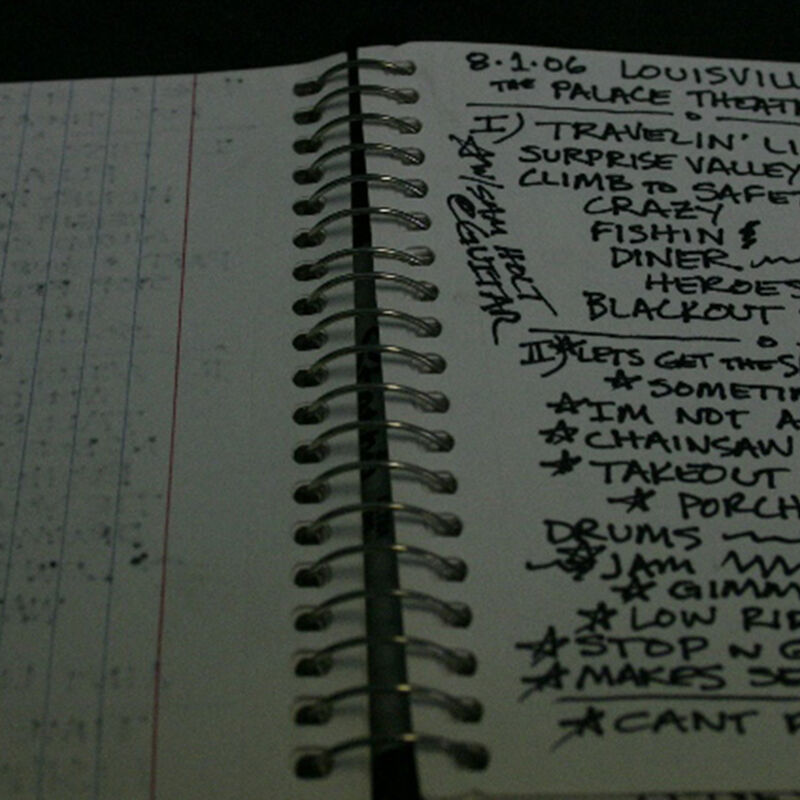 8.1.06 LOUISVILL
THE PALACE THEAT
I) TRAVELIN' LI
SURPRISE VALLEY
CLIMB TO SAFET
CRAZY
FISHIN
DINER
HEROES
BLACKOUT
☆ W/SAM HOLT
@GUITAR
II) ☆ LETS GET THE S
☆ SOMETIM
☆ IM NOT A
☆ CHAINSAW
☆ TAKEOUT
☆ PORCH
DRUMS
☆ JAM
☆ GIMM
☆ LOW RID
☆ STOP N G
☆ MAKES SE
☆ CANT